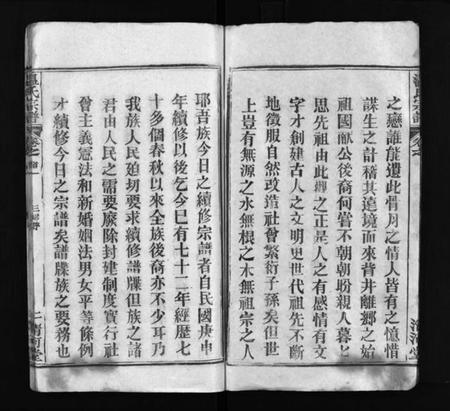 之戀誰能遣此惜月之情人皆有之憶昔
謀生之計稽其遠境而來背井離鄉之始
祖國獻公後裔何嘗不朝朝盼親人暮
思先祖由此鄉之正是人之有感情有文
字才創建古人之文明史世代祖先不斷
地徵服自然改造社會繁衍子孫矣但世
上豈有無源之水無根之木無祖宗之人
耶吾族今日之續修宗譜者自民國庚申
年續修以後乞今巳有七十二年經歷七
十多個春秋以來全族後裔亦不少耳乃
我族人民廹切要求續修譜牒但族之諸
君由人民之需要廢除封建制度實行社
會主義憲法和新婚姻法男女平等條例
才續修今日之宗譜矣譜牒族之要務也
溫氏宗譜
卷之